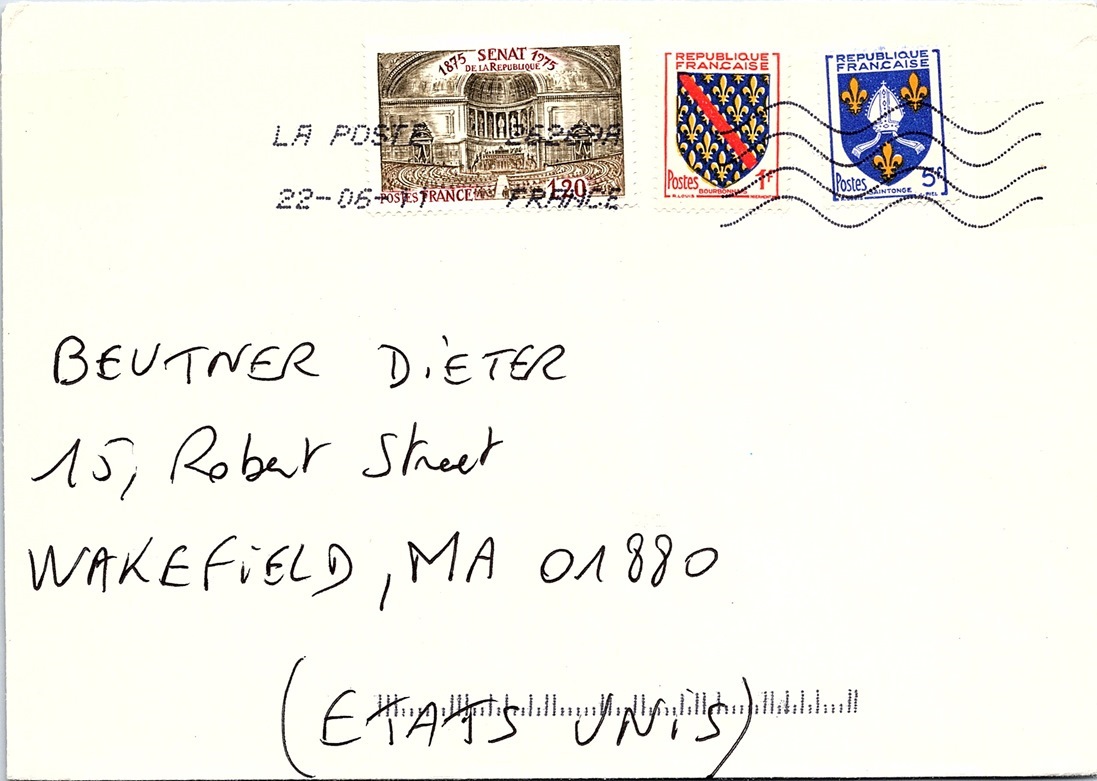 1875 SENAT 1975
DE LA REPUBLIQUE
POSTES FRANCE 1,20
REPUBLIQUE
FRANÇAISE
Postes 1F
BOURBONNAIS
REPUBLIQUE
FRANÇAISE
Postes 5F
SAINTONGE
PIEL
LA POSTE
22-06-
FRANCE
BEUTNER DiETER
15, Robert Street
WAKEFiELD, MA 01880
(ETATS UNiS)